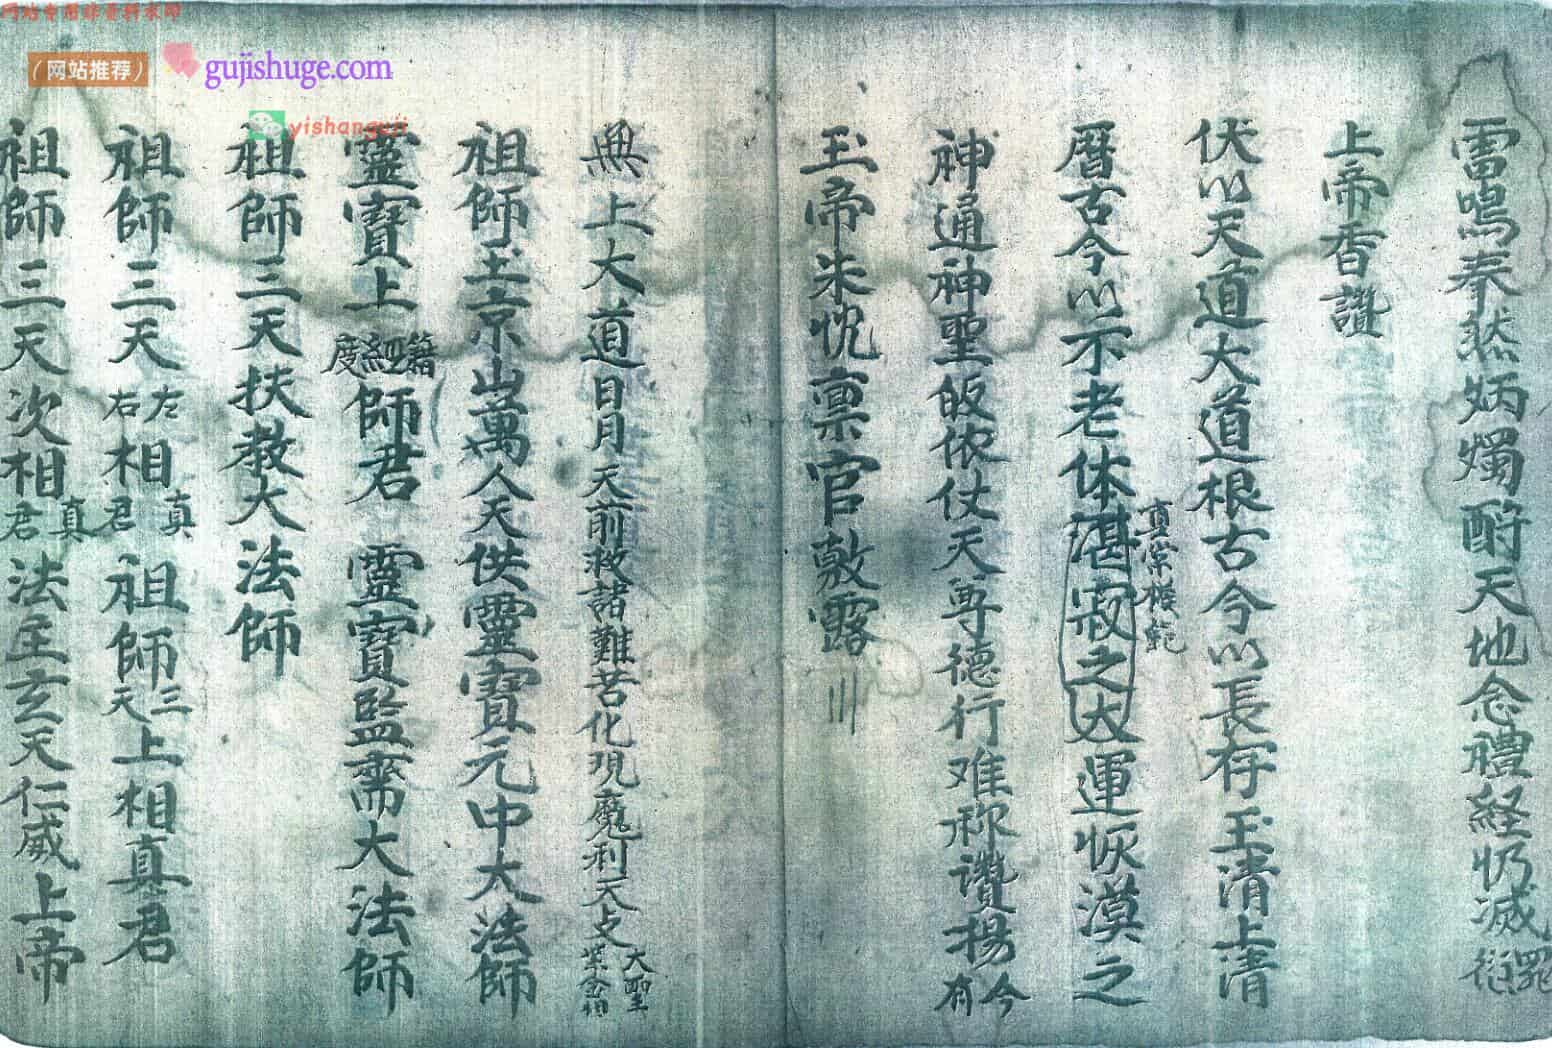 网站专用非资料水印
（网站推荐）
gujishuge.com
yishanguji
雷鳴奉然炳燭酧天地念禮経仍滅罪愆
上帝香讃
伏以天道大道根古今以長存玉清上清
曆古今以不老体湛寂之大運恢漠之
真常機軌
神通神聖皈依仗天尊德行难称讚揚今有
玉帝朱忱禀官敷露
無上大道日月天前救諸難苦化現魔利天支大聖紫金相
祖師玉京山萬人天供靈寶元中大法師
靈寶上籍經度師君 靈寶監齋大法師
祖師三天扶教大法師
祖師三天左右相真君 祖師三天上相真君
祖師三天次相真君法主玄天仁威上帝